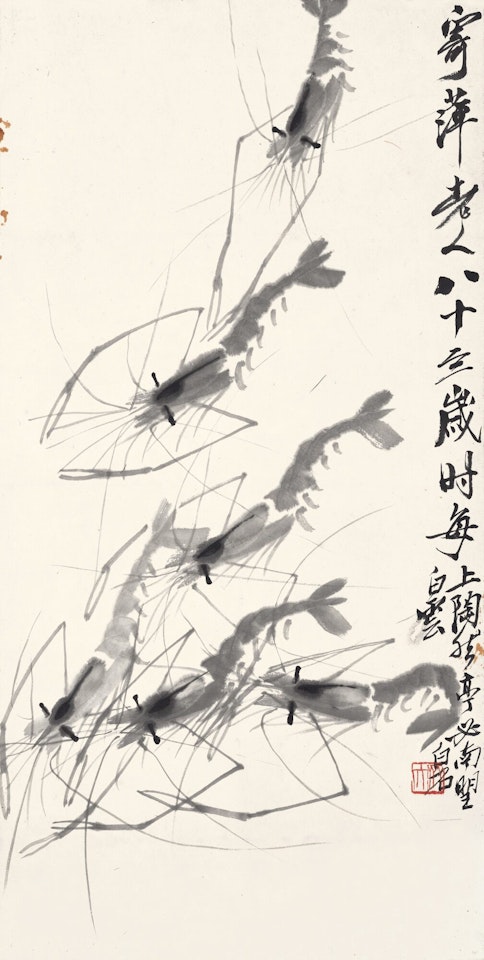 寄萍老人八十三歲时每上陶然亭必南望
白雲